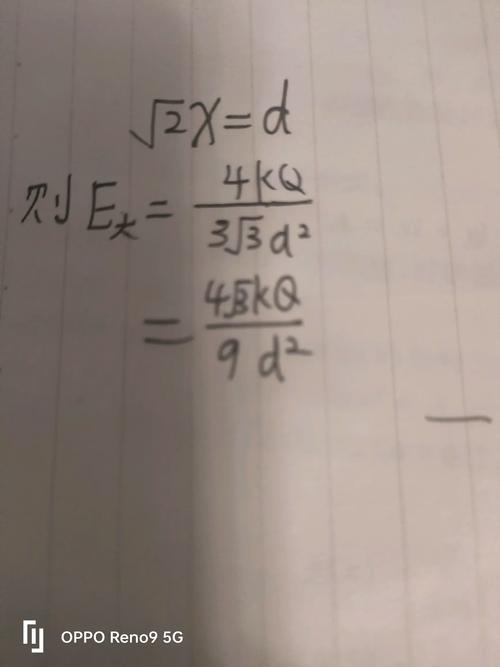 √2x=d
则E大=4kQ/3√3d²
=4√3kQ/9d²
OPPO Reno9 5G